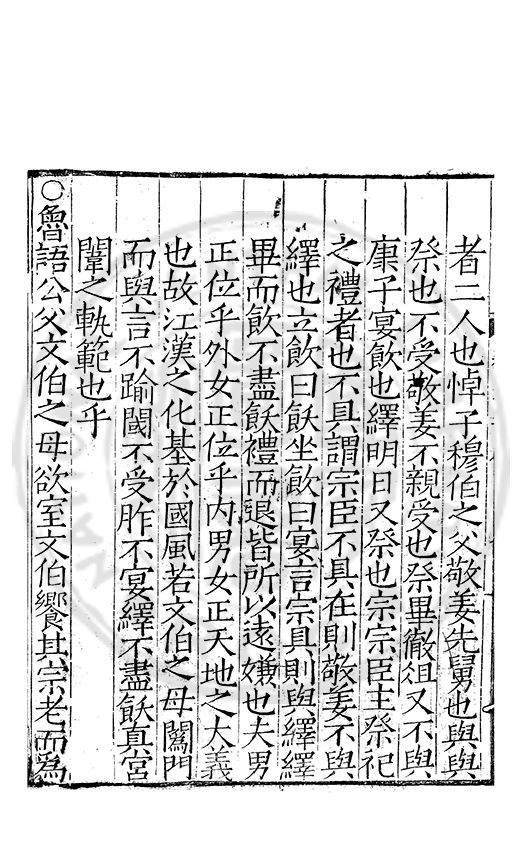 者二人也悼子穆伯之父敬姜先舅也與與
祭也不受敬姜不親受也祭畢徹俎又不與
康子宴飲也繹明日又祭也宗宗臣主祭祀
之禮者也不具謂宗臣不具在則敬姜不與
繹也立飲曰飫坐飲曰宴言宗具則與繹繹
畢而飲不盡飫禮而退皆所以遠嫌也夫男
正位乎外女正位乎内男女正天地之大義
也故江漢之化基於國風若文伯之母闖門
而與言不踰閾不受胙不宴繹不盡飫真宫
闈之軌範也乎
○魯語公父文伯之母欲室文伯饗其宗老而為